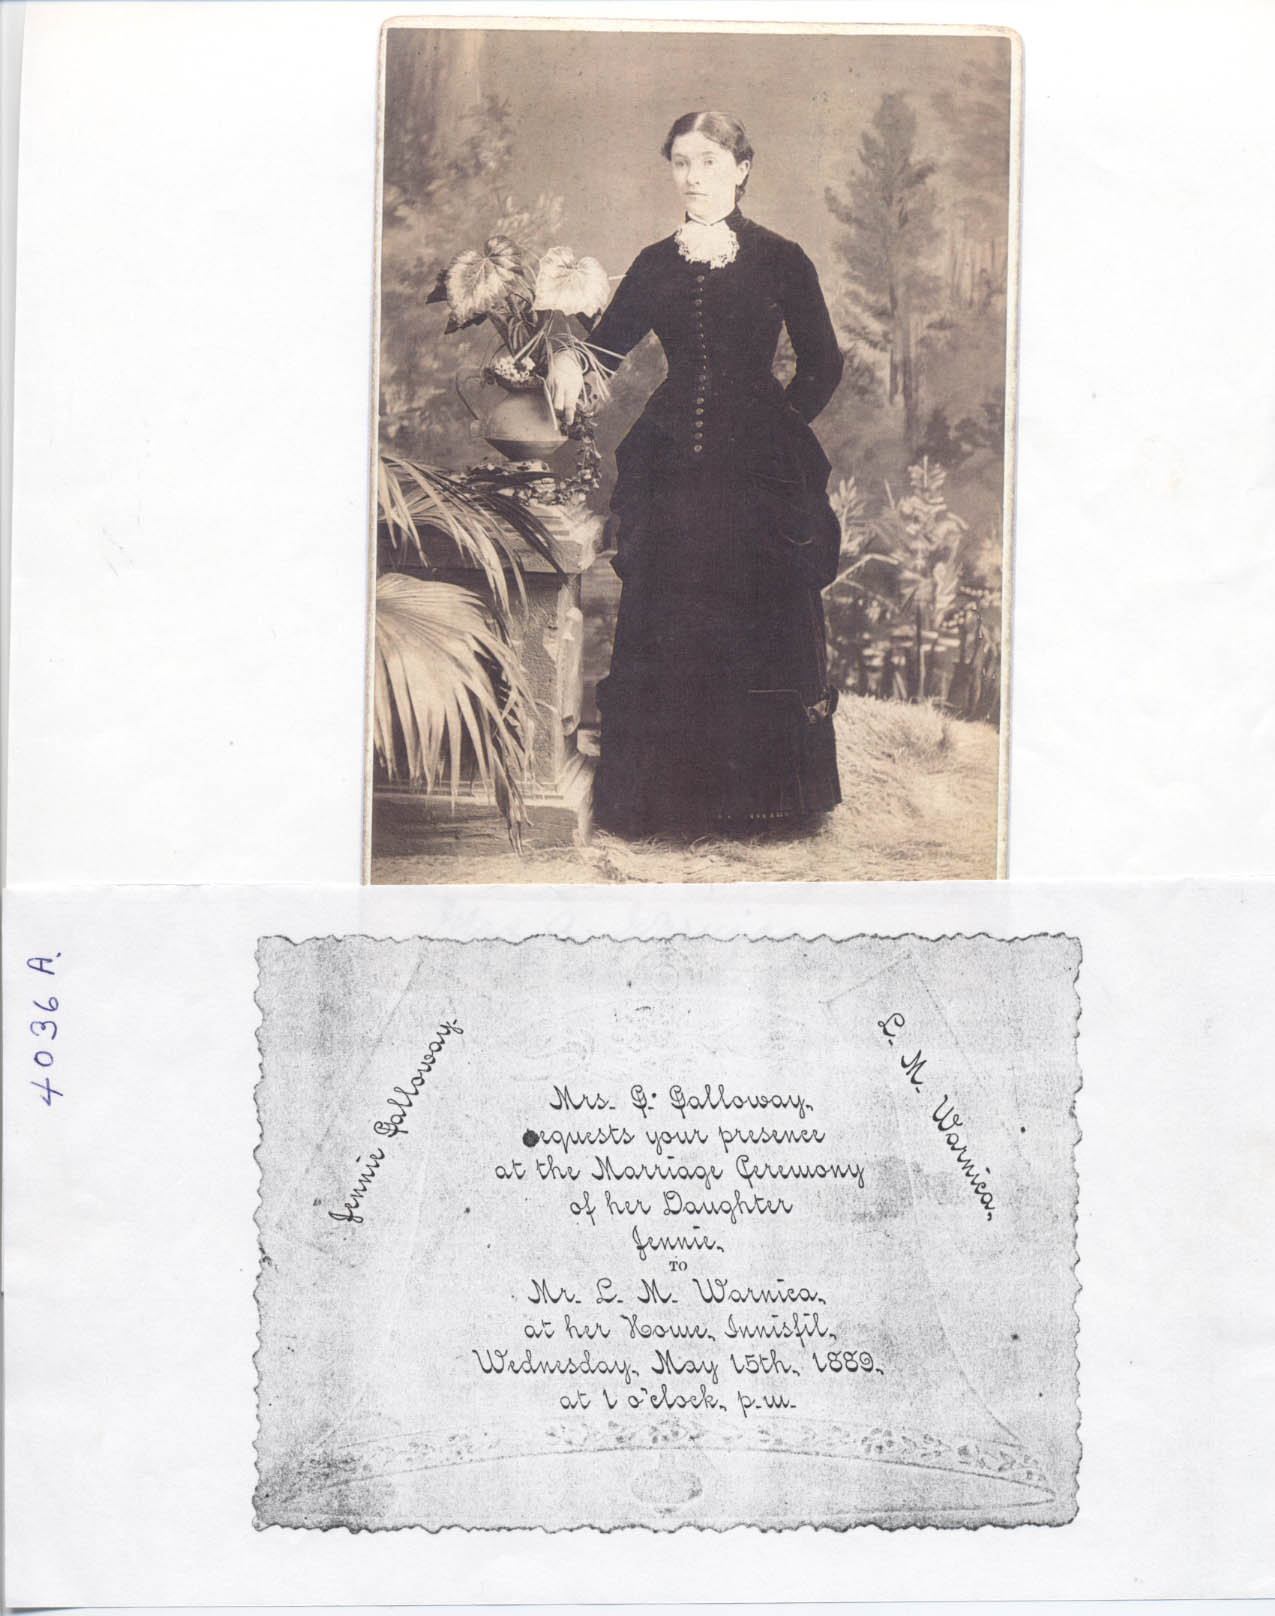 4036 A.
Jennie Galloway.
L. M. Warnica,
Mrs. G. Galloway,
requests your presence
at the Marriage Ceremony
of her Daughter
Jennie,
TO
Mr. L. M. Warnica,
at her Home, Innisfil,
Wednesday, May 15th, 1889,
at 1 o'clock, p.m.